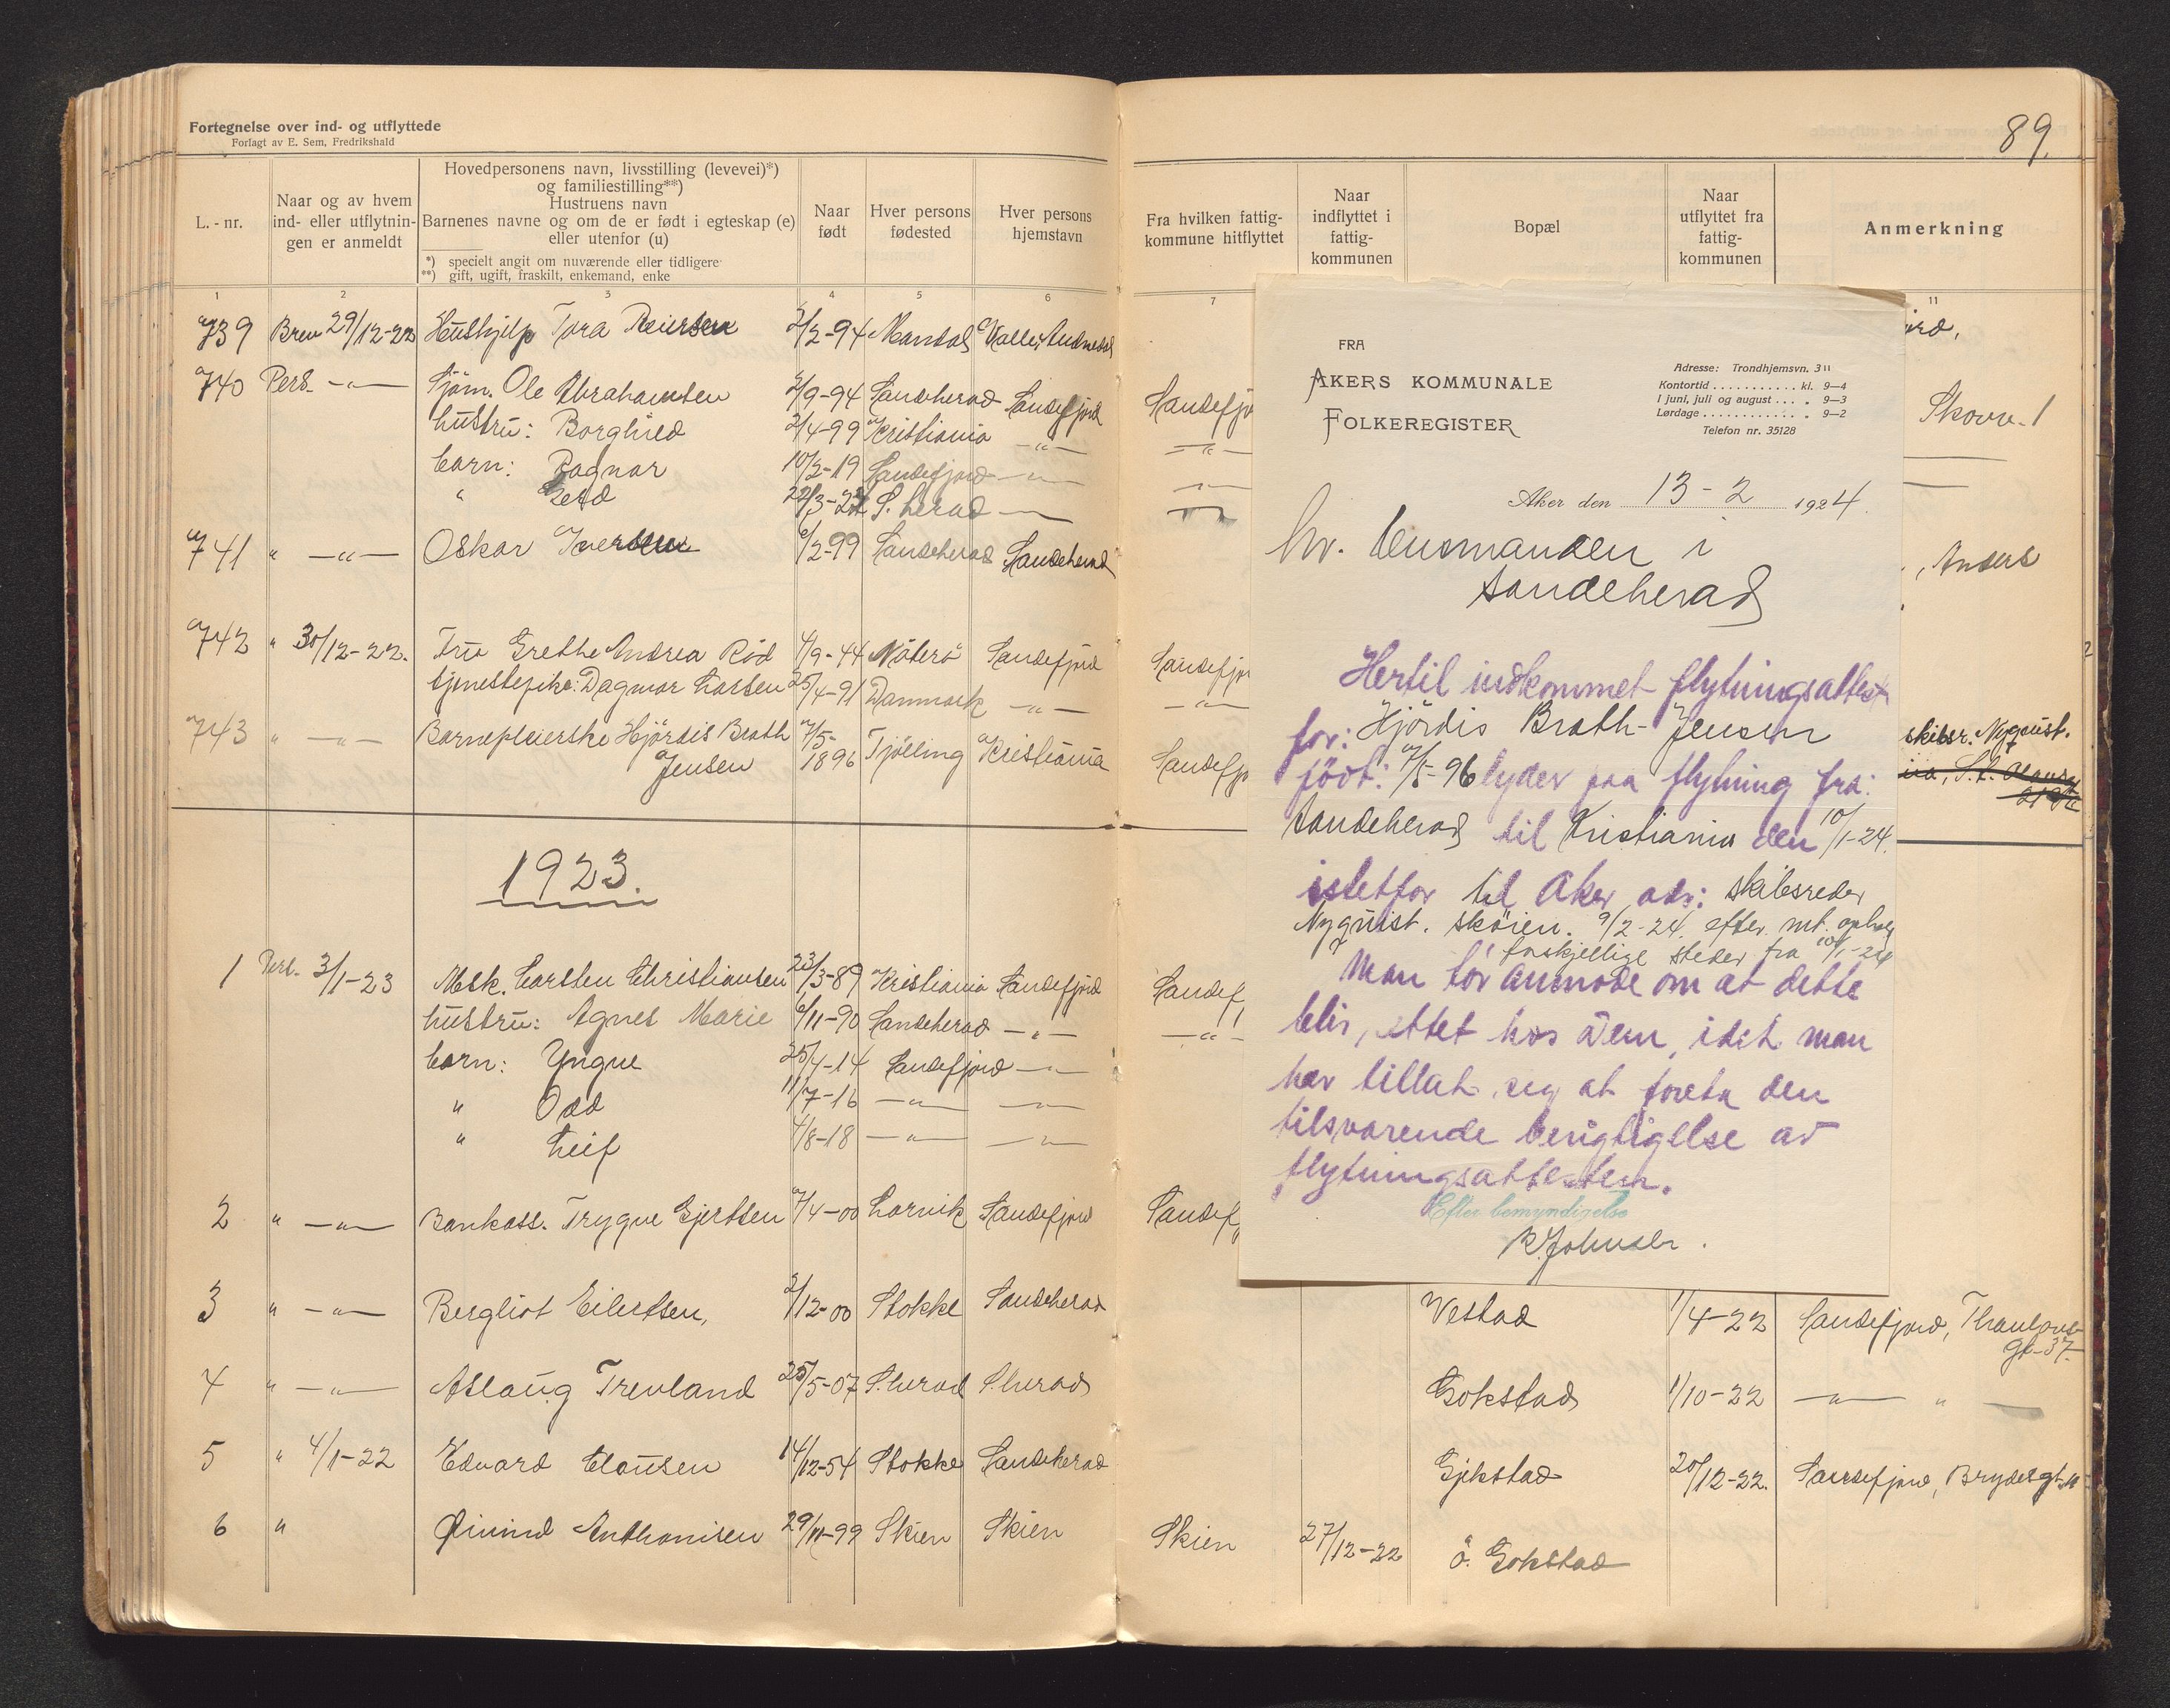 Fortegnelse over ind- og utflyttede
Forlagt av E. Sem, Fredrikshald
89.
L.-nr.
Naar og av hvem
ind- eller utflytnin-
gen er anmeldt
Hovedpersonens navn, livsstilling (levevei)*)
og familiestilling**)
Hustruens navn
Barnenes navne og om de er født i egteskap (e)
eller utenfor (u)
*) specielt angit om nuværende eller tidligere
**) gift, ugift, fraskilt, enkemand, enke
Naar
født
Hver persons
fødested
Hver persons
hjemstavn
Fra hvilken fattig-
kommune hitflyttet
Naar
indflyttet i
fattig-
kommunen
Bopæl
Naar
utflyttet fra
fattig-
kommunen
Anmerkning
1 2 3 4 5 6 7 11
739 Brev 29/12-22 Hushjelp Tora Reiersen 2/2-94 Mandal
740 Pers. —"— Sjøm. Ole Abrahamsen 2/9-94 Sandeherad Sandefjord Skovv. 1
hustru: Borghild 2/4-99 Kristiania —"—
barn: Ragnar 10/2-19 Sandefjord —"—
" S. herad —"—
741 " —"— Oskar Iversen 6/2-99 Sandeherad Sandeherad , Anders
742 " 30/12-22. Fru Grethe Andrea Rød 4/9-44 Nøterö Sandefjord
tjenestepike: Dagmar Larsen 25/4-91 Danmark —"— —"—
743 " —"— Barnepleierske Hjördis Brath 7/5- Tjölling Kristiania skibsr. Nyquist.
Jensen 1896
1923.
1 Pers. 3/1-23 Msk. Carsten Christiansen 23/3-89 Kristiania Sandefjord
hustru: Agnes Marie 6/11-90 Sandeherad —"— —"—
barn: Yngve 25/4-14 Sandefjord —"—
" Odd 11/7-16 —"— —"—
" Leif 4/8-18 —"— —"—
2 " —"— Bankass. Trygve Gjertsen 7/4-00 Larvik Sandefjord
3 " —"— Bergliot Eilertsen, 2/12-00 Stokke Sandeherad Vestad 1/4-22 Sandefjord, Thaulows-
gt-37.
4 " —"— Aslaug Trevland 25/5-07 S.herad S.herad Gokstad 1/10-22 —"— " —
5 " 4/1-22 Edvard Clausen 14/12-54 Stokke Sandeherad Gjekstad 20/12-22. Sandefjord, Brydesgt.
6 " Øivind Anthonisen 29/11-99 Skien Skien Skien 27/12-22 Ö. Gokstad
FRA
AKERS KOMMUNALE
FOLKEREGISTER
Adresse: Trondhjemsvn. 3 II
Kontortid . . . . . . . . . . . kl. 9—4
I juni, juli og august . . . „ 9—3
Lørdage . . . . . . . . . . . . „ 9—2
Telefon nr. 35128
Aker den 13 - 2 1924.
hr. lensmanden i
Sandeherad
Hertil indkommet flytningsattest
for: Hjördis Brath-Jensen
født: 7/5-96 lyder paa flytning fra:
Sandeherad til Kristiania den 10/1-24.
istetfor til Aker adr: skibsreder
Nyquist. Skøien. 9/2-24. efter mt. ophold
forskjellige steder fra 10/1-24
Man tør anmode om at dette
blir rettet hos Dem, idet man
har tillat sig at foreta den
tilsvarende berigtigelse av
flytningsattesten.
Efter bemyndigelse
R. Johnsen.